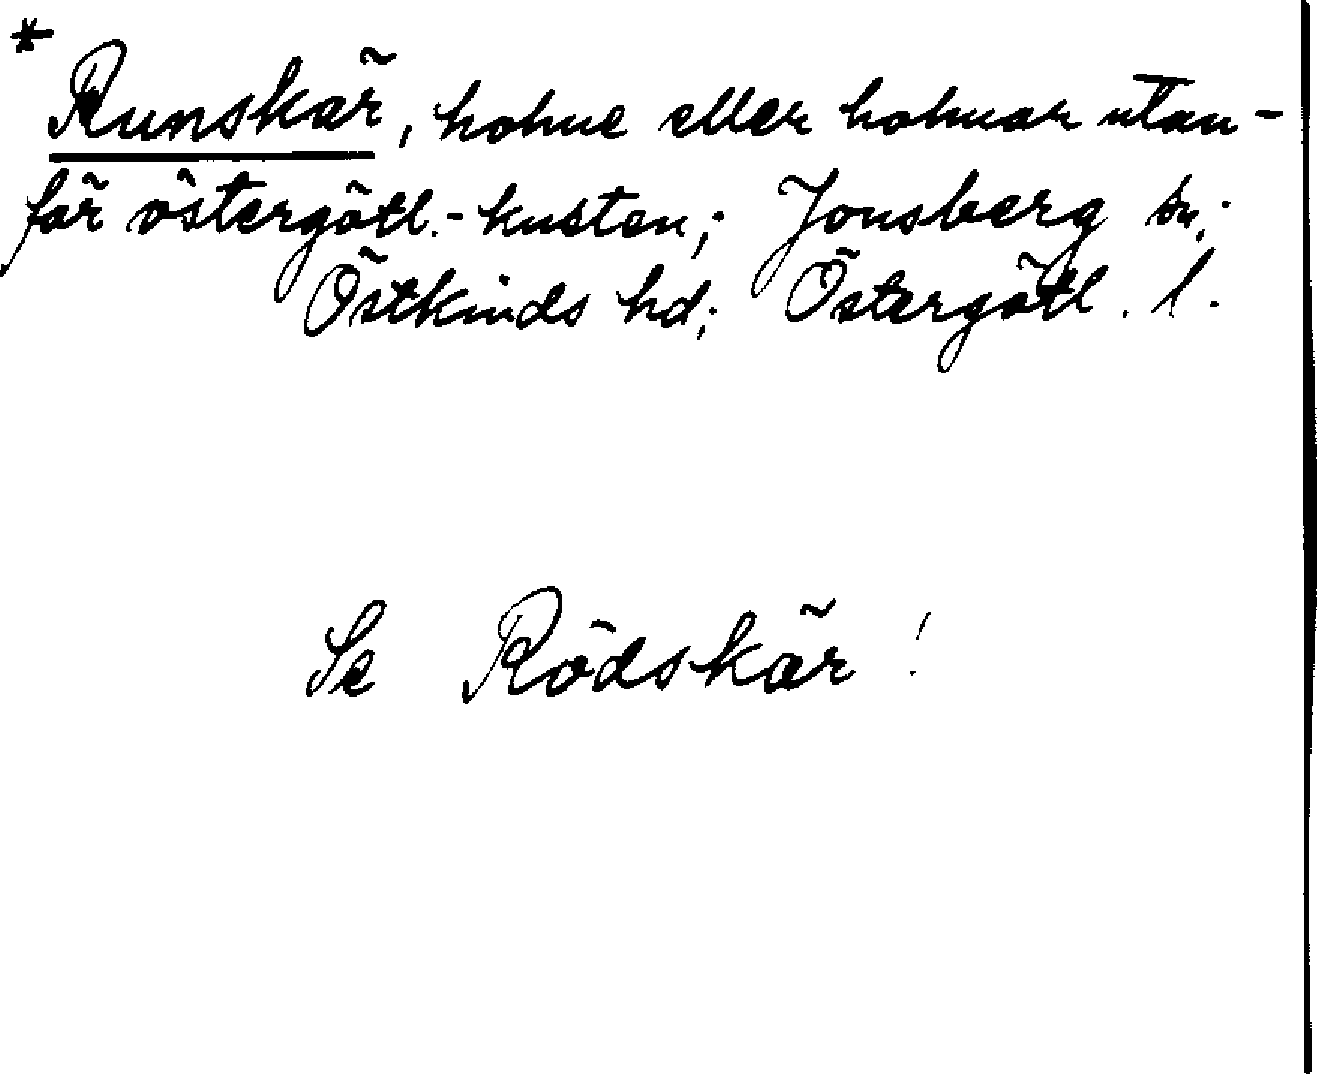 * Runskär, holme eller holmar utan-
för östergötl.-kusten; Jonsberg sn;
Östkinds hd; Östergötl. l.
Se Rödskär!